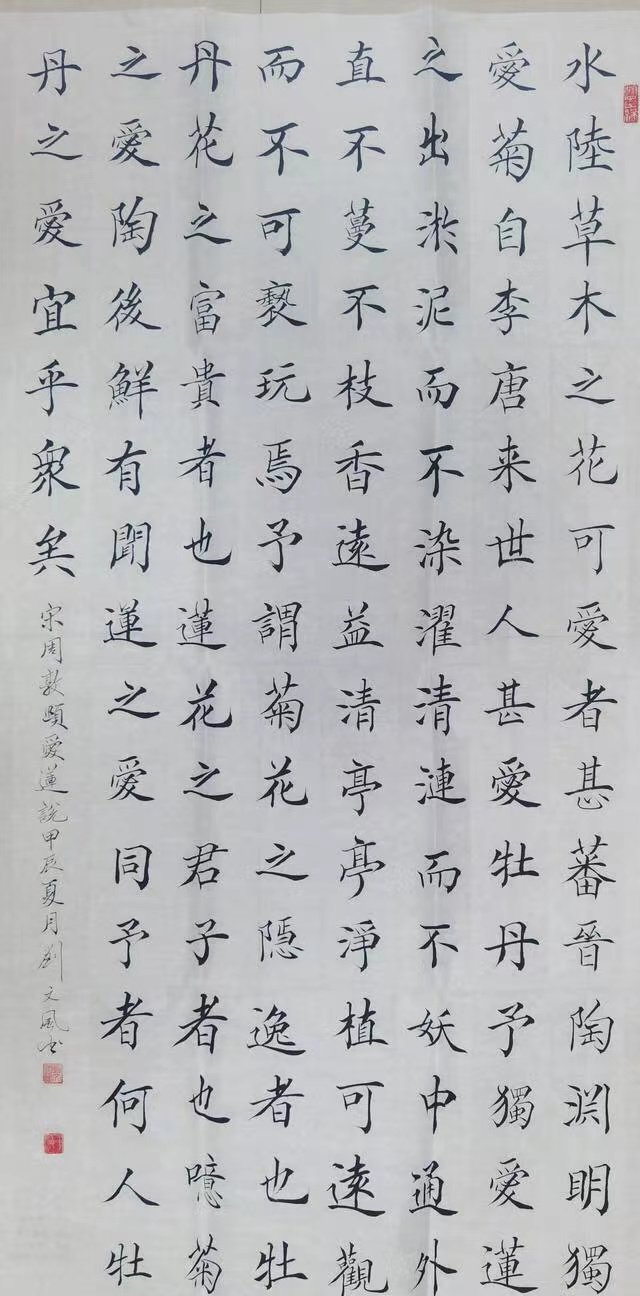 水陸草木之花可愛者甚蕃晉陶淵明獨
愛菊自李唐来世人甚愛牡丹予獨愛蓮
之出淤泥而不染濯清漣而不妖中通外
直不蔓不枝香遠益清亭亭淨植可遠觀
而不可褻玩焉予謂菊花之隱逸者也牡
丹花之富貴者也蓮花之君子者也噫菊
之愛陶後鮮有聞蓮之愛同予者何人牡
丹之愛宜乎衆矣
宋周敦頤愛蓮說甲辰夏月劉文風书